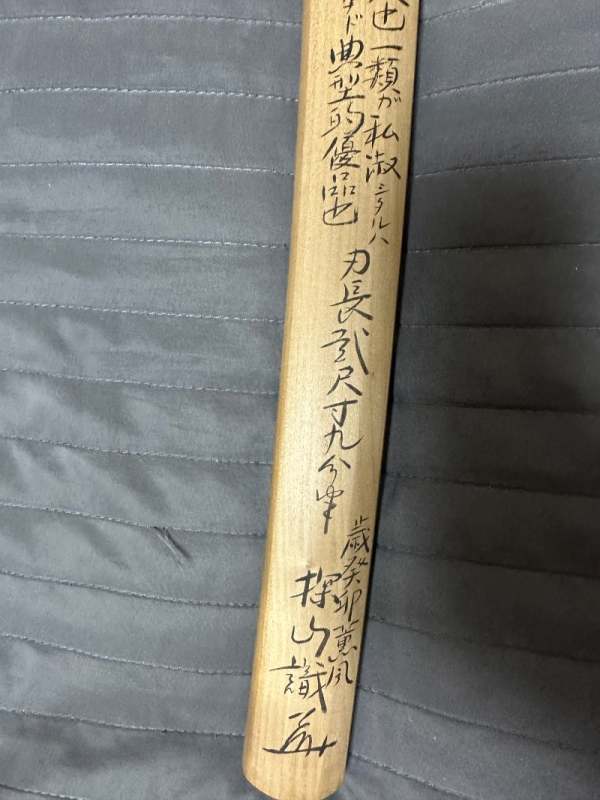 也一類が私淑シタルハ
ド典型的優品也
刃長弐尺寸九分半
歳癸卯薫風
探山識